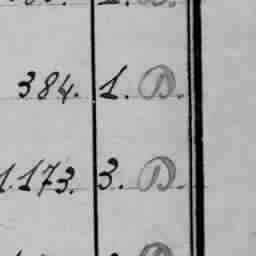 384. 1. D.
1.173. 3. D.